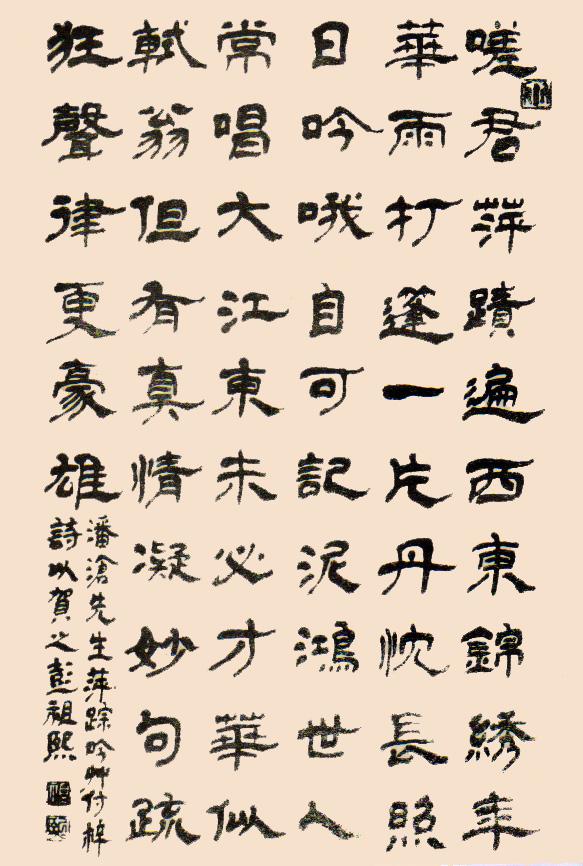 嗟君萍蹟遍西東錦綉年
華雨打蓬一片丹忱長照
日吟哦自可記泥鴻世人
常唱大江東未必才華似
軾翁但有真情凝妙句疏
狂聲律更豪雄
潘滄先生萍踪吟艸付梓
詩以賀之彭祖熙